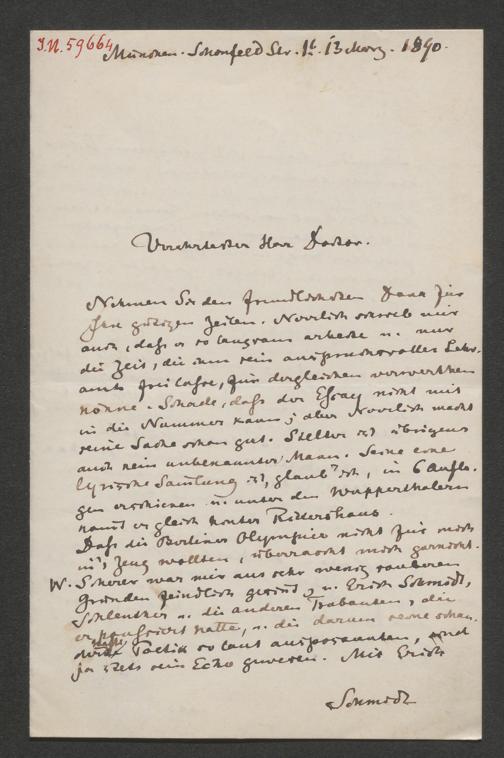 I.N. 59664
München. Schönfeld Str. 16. 13 März. 1890.
Verehrtester Herr Doctor.
Nehmen Sie den freundlichsten Dank für
Ihre gütigen Zeilen. Neulich schrieb mir
auch, daß er so langsam arbeite u. nur
die Zeit, die ihm sein anspruchsvolles Lehr-
amt freilasse, für dergleichen verwerthen
könne. Schade, daß der Essay nicht mit
in die Nummer kann; aber macht
seine Sache schon gut. Stelter ist übrigens
auch kein unbekannter Mann. Seine eine
lyrische Samlung ist, glaub' ich, in 6 Aufla-
gen erschienen u. unter den Wupperthalern
komt er gleich hinter Rittershaus.
Daß die Berliner Olympier nicht für mich
in's Zeug wollten, überrascht mich garnicht.
W. Scherer war mir aus sehr wenig sauberen
Gründen feindlich gesint, u. Erich Schmidt,
Schlenther u. die anderen Trabanten, die
er hatte, u. die darum seine
Tactik so laut ausposaunten, sind
ja stets sein Echo gewesen. Mit Erich
Schmidt